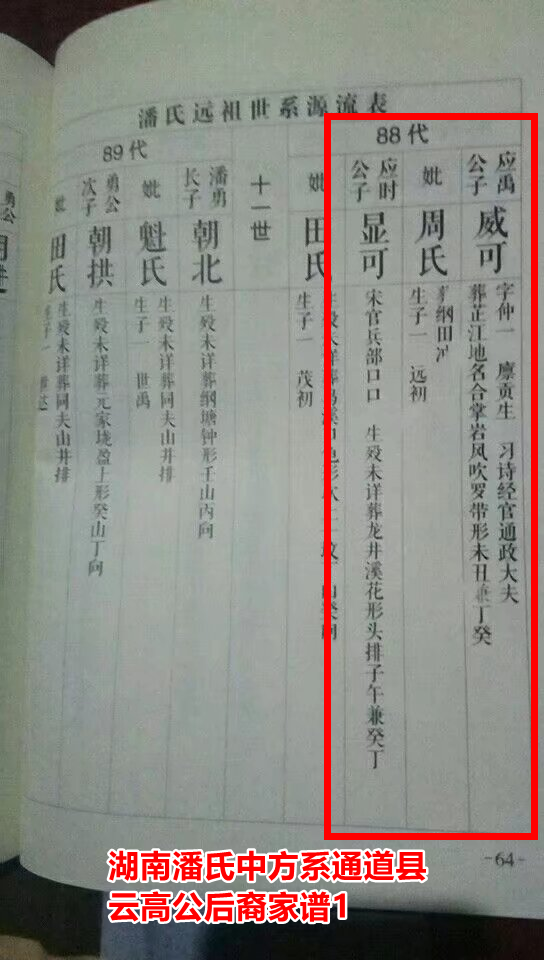 潘氏远祖世系源流表
88代
应禹
公子
威可
字仲一 廪贡生 习诗经官通政大夫
葬芷江地名合掌岩风吹罗带形未丑兼丁癸
妣
周氏
纲田冲
生子一 远初
应时
公子
显可
宋官兵部口口 生殁未详葬龙井溪花形头排子午兼癸丁
妣
田氏
生子一 茂初
十一世
89代
潘勇
长子
朝北
生殁未详葬纲塘钟形壬山丙向
妣
魁氏
生殁未详葬同夫山并排
生子一 世禹
勇公
次子
朝拱
生殁未详葬元家垅盈上形癸山丁向
妣
田氏
生殁未详葬同夫山并排
生子一
勇公
-64-
湖南潘氏中方系通道县
云高公后裔家谱1